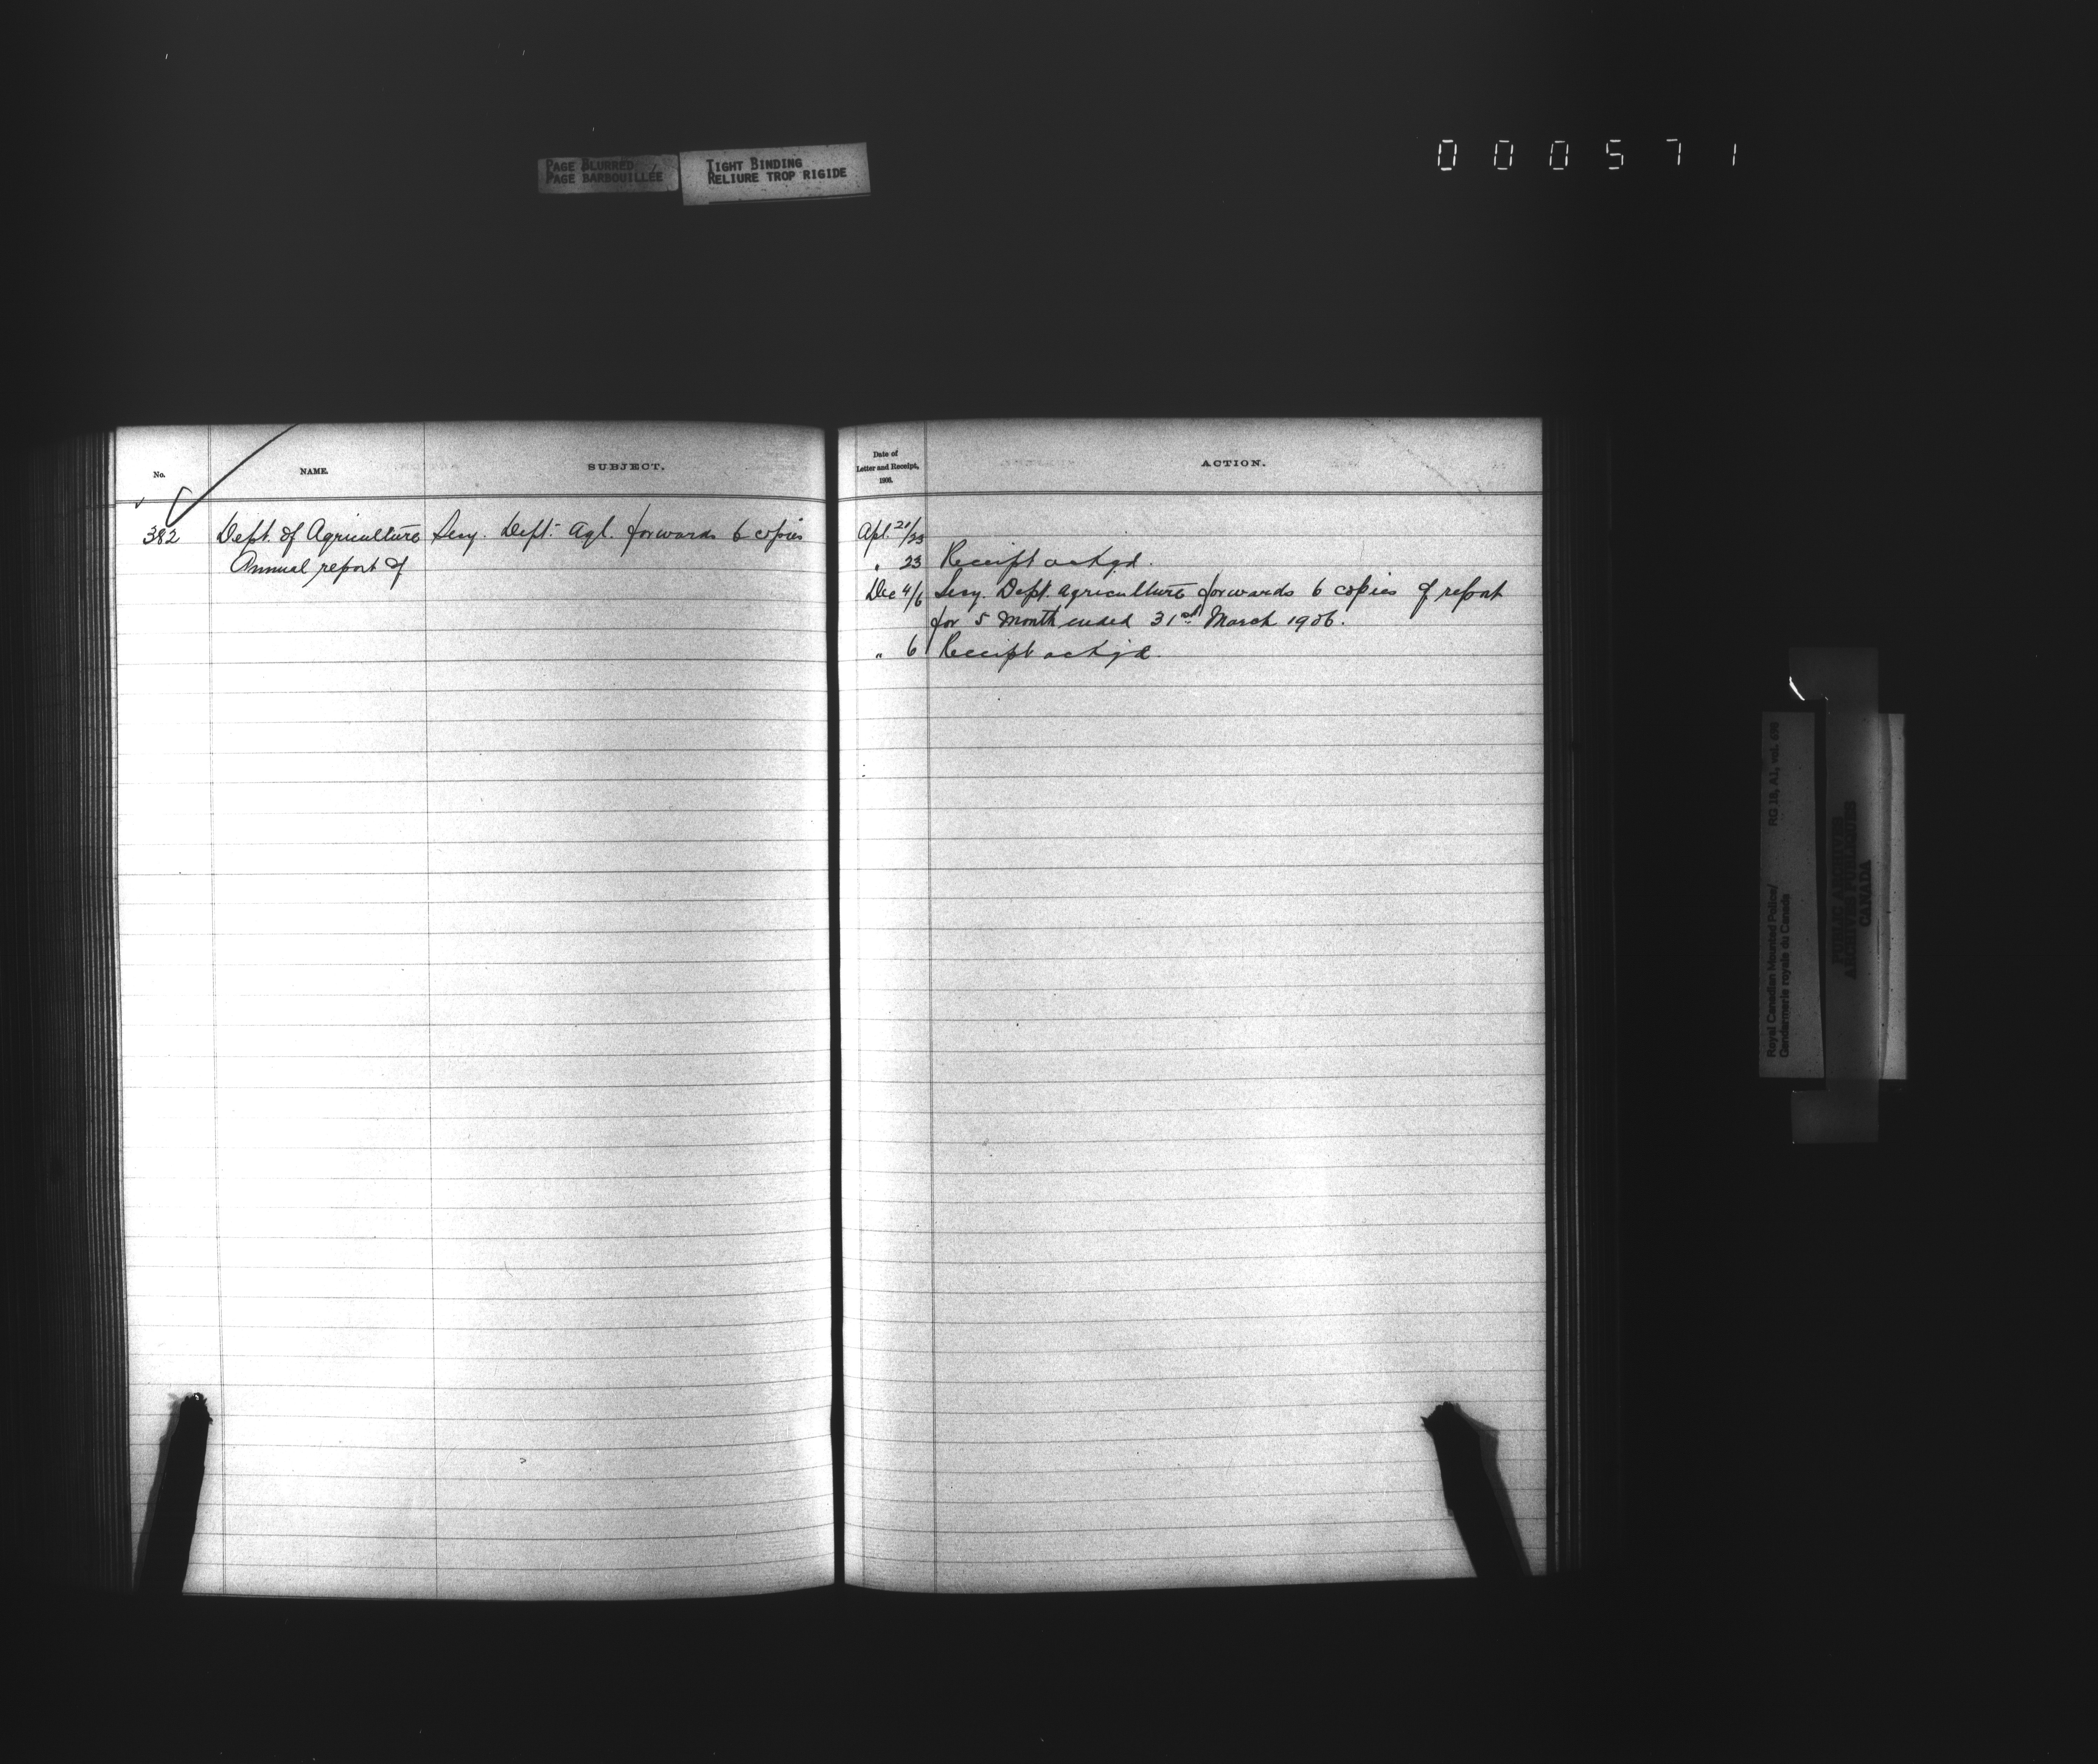 PAGE BLURRED
PAGE BARBOUILLÉE
TIGHT BINDING
RELIURE TROP RIGIDE
000571
No.
NAME.
SUBJECT.
382 Dept. of Agriculture Secy. Dept. Agl. forwards 6 copies
Annual report of
Date of
Letter and Receipt,
1906.
ACTION.
Apl. 21/23
" 23 Receipt ackgd.
Dec 4/6 Secy. Dept. Agriculture forwards 6 copies of report
for 5 month ended 31st March 1906.
" 6 Receipt ackgd.
Royal Canadian Mounted Police/ RG 18, A1, vol. 698
Gendarmerie royale du Canada
PUBLIC ARCHIVES
ARCHIVES PUBLIQUES
CANADA